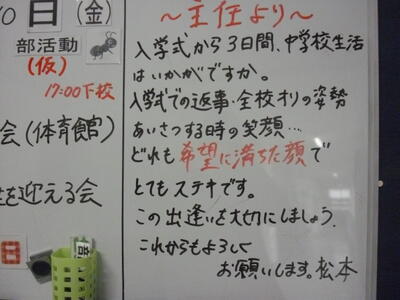 0日(金)
部活動
(仮)
17:00下校
会(体育館)
を迎える会
~主任より~
入学式から3日間、中学校生活
はいかがですか。
入学式での返事・全校オリの姿勢
あいさつする時の笑顔…
どれも希望に満ちた顔で
とてもステキです。
この出逢いを大切にしましょう。
これからもよろしく
お願いします。松本
日